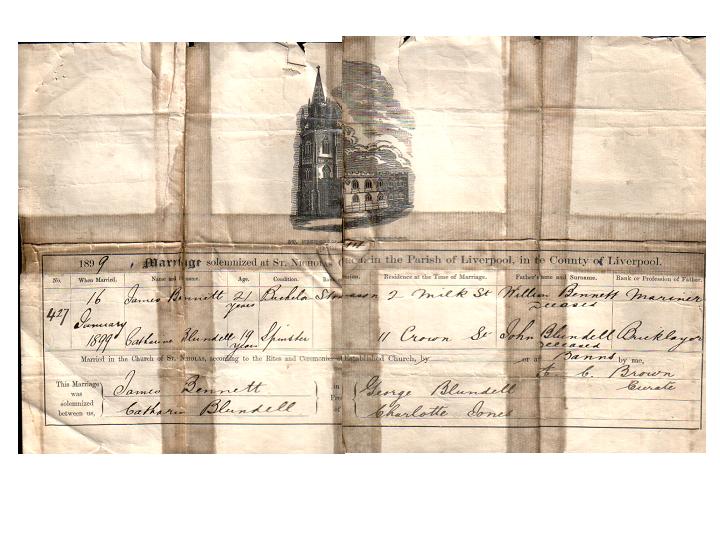 1899, Marriage solemnized at St. Nicholas in the Parish of Liverpool, in te County of Liverpool.
No. When Married. Name and Surname. Age. Condition. Residence at the Time of Marriage. Father's Name and Surname. Rank or Profession of Father.
427 16 January 1899 James Bennett 21 years Bachelor 2 Milk St William Bennett deceased Mariner
Catharine Blundell 19 years Spinster 11 Crown St John Blundell deceased Bricklayer
Married in the Church of St. Nicholas, according to the Rites and Ceremonies of Established Church, by or after Banns by me,
This Marriage was solemnized between us, James Bennett in George Blundell C. Brown
Catharine Blundell of Charlotte Jones Curate